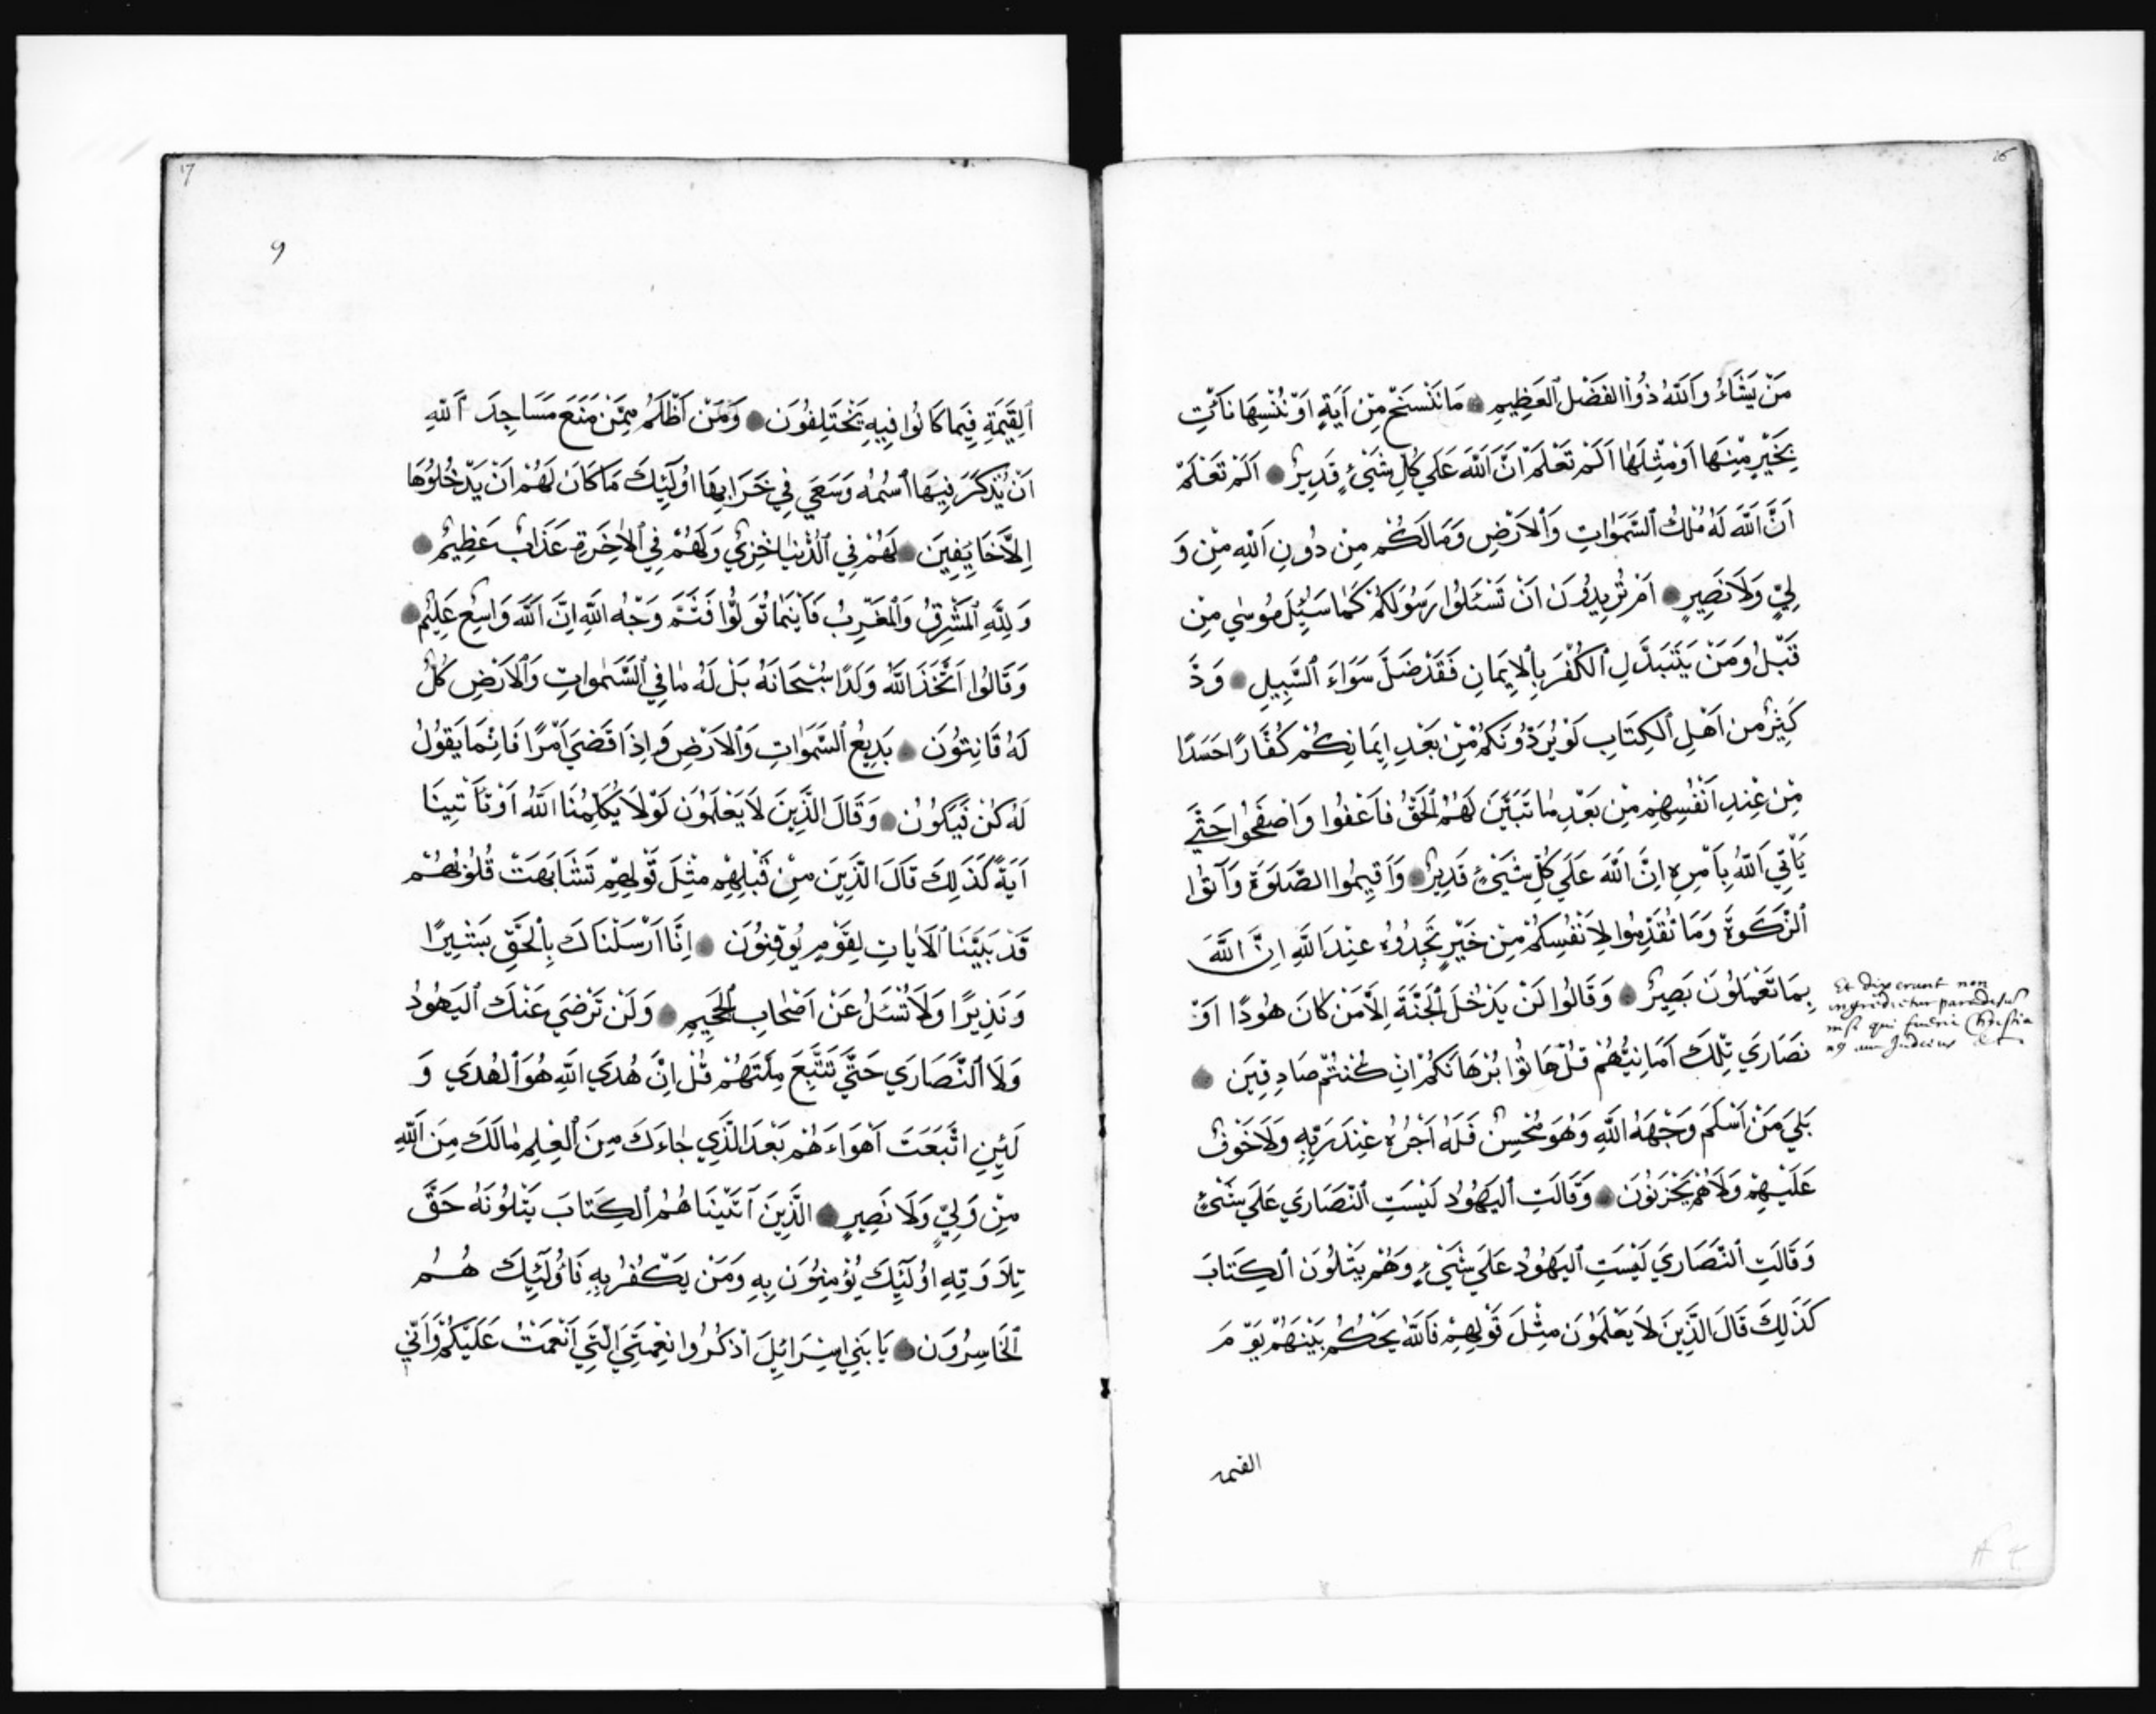 16
مَنْ يَشَاءُ وَاَللَّهُ ذُوْ الفَضْلِ اَلعَظِيمِ مَا نَنْسَخْ مِنْ اَيَةٍ اَوْ نُنْسِهَا نَأتِ
بِخَيْرٍ مِنْهَا اَوْ مِثْلِهَا اَلَمْ تَعْلَمْ اَنَّ اَللَّهَ عَلَي كُلِّ شَيْئٍ قَدِيرٌ اَلَمْ تَعْلَمْ
اَنَّ اَللَّهَ لَهُ مُلْكُ اَلسَّمَوَاتِ وَاَلاَرْضِ وَمَا لَكُمْ مِنْ دُونِ اَللَّهِ مِنْ وَ
لِيٍّ وَلَا نَصِيرٍ اَمْ تُرِيدُونَ اَنْ تَسْئَلُوا رَسُولَكُمْ كَمَا سُئِلَ مُوسٰي مِنْ
قَبْلُ وَمَنْ يَتَبَدَّلِ اَلكُفْرَ بِالاِيمَانِ فَقَدْ ضَلَّ سَوَاءَ اَلسَّبِيلِ وَدَّ
كَثِيرٌ مِنْ اَهْلِ اَلكِتَابِ لَوْ يُرَدُّونَكُمْ مِنْ بَعْدِ اِيمَانِكُمْ كُفَّارًا حَسَدًا
مِنْ عِنْدِ اَنْفُسِهِمْ مِنْ بَعْدِ مَا تَبَيَّنَ لَهُمُ اَلحَقُّ فَاَعْفُوا وَاَصْفَحُوا حَتَّي
يَأتِيَ اَللَّهُ بِاَمْرِهِ اِنَّ اَللَّهَ عَلَي كُلِّ شَيْئٍ قَدِيرٌ وَاَقِيمُوا الصَّلَوةَ وَآتُوا
اَلزَّكَوةَ وَمَا تُقَدِّمُوا لِاَنْفُسِكُمْ مِنْ خَيْرٍ تَجِدُوهُ عِنْدَ اَللَّهِ اِنَّ اَللَّهَ
بِمَا تَعْمَلُونَ بَصِيرٌ وَقَالُوا لَنْ يَدْخُلَ اَلجَنَّةَ اِلاَّ مَنْ كَانَ هُودًا اَوْ
Et dixerunt non
ingredietur paradisum
nisi qui fuerit Christia
nus aut Judaeus
نَصَارَي تِلْكَ اَمَانِيُّهُمْ قُلْ هَاتُوا بُرْهَانَكُمْ اِنْ كُنْتُمْ صَادِقِينَ
بَلَي مَنْ اَسْلَمَ وَجْهَهُ اَللَّهِ وَهُوَ مُحْسِنٌ فَلَهُ اَجْرُهُ عِنْدَ رَبِّهِ وَلَا خَوْفٌ
عَلَيْهِمْ وَلَا هُمْ يَحْزَنُونَ وَقَالَتِ اَليَهُودُ لَيْسَتِ اَلنَّصَارَي عَلَي شَيْئٍ
وَقَالَتِ اَلنَّصَارَي لَيْسَتِ اَليَهُودُ عَلَي شَيْئٍ وَهُمْ يَتْلُونَ اَلكِتَابَ
كَذَلِكَ قَالَ الَّذِينَ لَا يَعْلَمُونَ مِثْلَ قَوْلِهِمْ فَاَللَّهُ يَحْكُمُ بَيْنَهُمْ يَوْمَ
القيمة
17
9
اَلقِيَمَةِ فِيمَا كَانُوا فِيهِ يَخْتَلِفُونَ وَمَنْ اَظْلَمُ مِمَّنْ مَنَعَ مَسَاجِدَ اَللَّهِ
اَنْ يُذْكَرَ فِيهَا اَسْمُهُ وَسَعَي فِي خَرَابِهَا اُولَئِكَ مَا كَانَ لَهُمْ اَنْ يَدْخُلُوهَا
اِلاَّ خَايِفِينَ لَهُمْ فِي اَلدُّنْيَا خِزْيٌ وَلَهُمْ فِي اَلاَخِرَةِ عَذَابٌ عَظِيمٌ
وَلِلَّهِ اَلمَشْرِقُ وَاَلمَغْرِبُ فَاَيْنَمَا تُوَلُّوا فَثَمَّ وَجْهُ اَللَّهِ اِنَّ اَللَّهَ وَاسِعٌ عَلِيمٌ
وَقَالُوا اَتَّخَذَ اَللَّهُ وَلَدًا سُبْحَانَهُ بَلْ لَهُ مَا فِي اَلسَّمَوَاتِ وَاَلاَرْضِ كُلٌّ
لَهُ قَانِتُونَ بَدِيعُ اَلسَّمَوَاتِ وَاَلاَرْضِ وَاِذَا قَضَي اَمْرًا فَاِنَّمَا يَقُولُ
لَهُ كُنْ فَيَكُونُ وَقَالَ الَّذِينَ لَا يَعْلَمُونَ لَوْلَا يُكَلِّمُنَا اَللَّهُ اَوْ تَأتِينَا
اَيَةٌ كَذَلِكَ قَالَ الَّذِينَ مِنْ قَبْلِهِمْ مِثْلَ قَوْلِهِمْ تَشَابَهَتْ قُلُوبُهُمْ
قَدْ بَيَّنَّا اَلاَيَاتِ لِقَوْمٍ يُوقِنُونَ اِنَّا اَرْسَلْنَاكَ بِالْحَقِّ بَشِيرًا
وَنَذِيرًا وَلَا تُسْئَلُ عَنْ اَصْحَابِ اَلجَحِيمِ وَلَنْ تَرْضَي عَنْكَ اَليَهُودُ
وَلَا اَلنَّصَارَي حَتَّي تَتَّبِعَ مِلَّتَهُمْ قُلْ اِنَّ هُدَي اَللَّهِ هُوَ اَلهُدَي وَ
لَئِنِ اتَّبَعَتَ اَهْوَاءَهُمْ بَعْدَ الَّذِي جَاءَكَ مِنَ اَلعِلْمِ مَا لَكَ مِنَ اَللَّهِ
مِنْ وَلِيٍّ وَلَا نَصِيرٍ الَّذِينَ آتَيْنَاهُمُ اَلكِتَابَ يَتْلُونَهُ حَقَّ
تِلَاوَتِهِ اُولَئِكَ يُؤْمِنُونَ بِهِ وَمَنْ يَكْفُرْ بِهِ فَاُولَئِكَ هُمُ
اَلخَاسِرُونَ يَا بَنِي اِسْرَائِلَ اَذْكُرُوا نِعْمَتِيَ الَّتِي اَنْعَمْتُ عَلَيْكُمْ وَاَنِّي